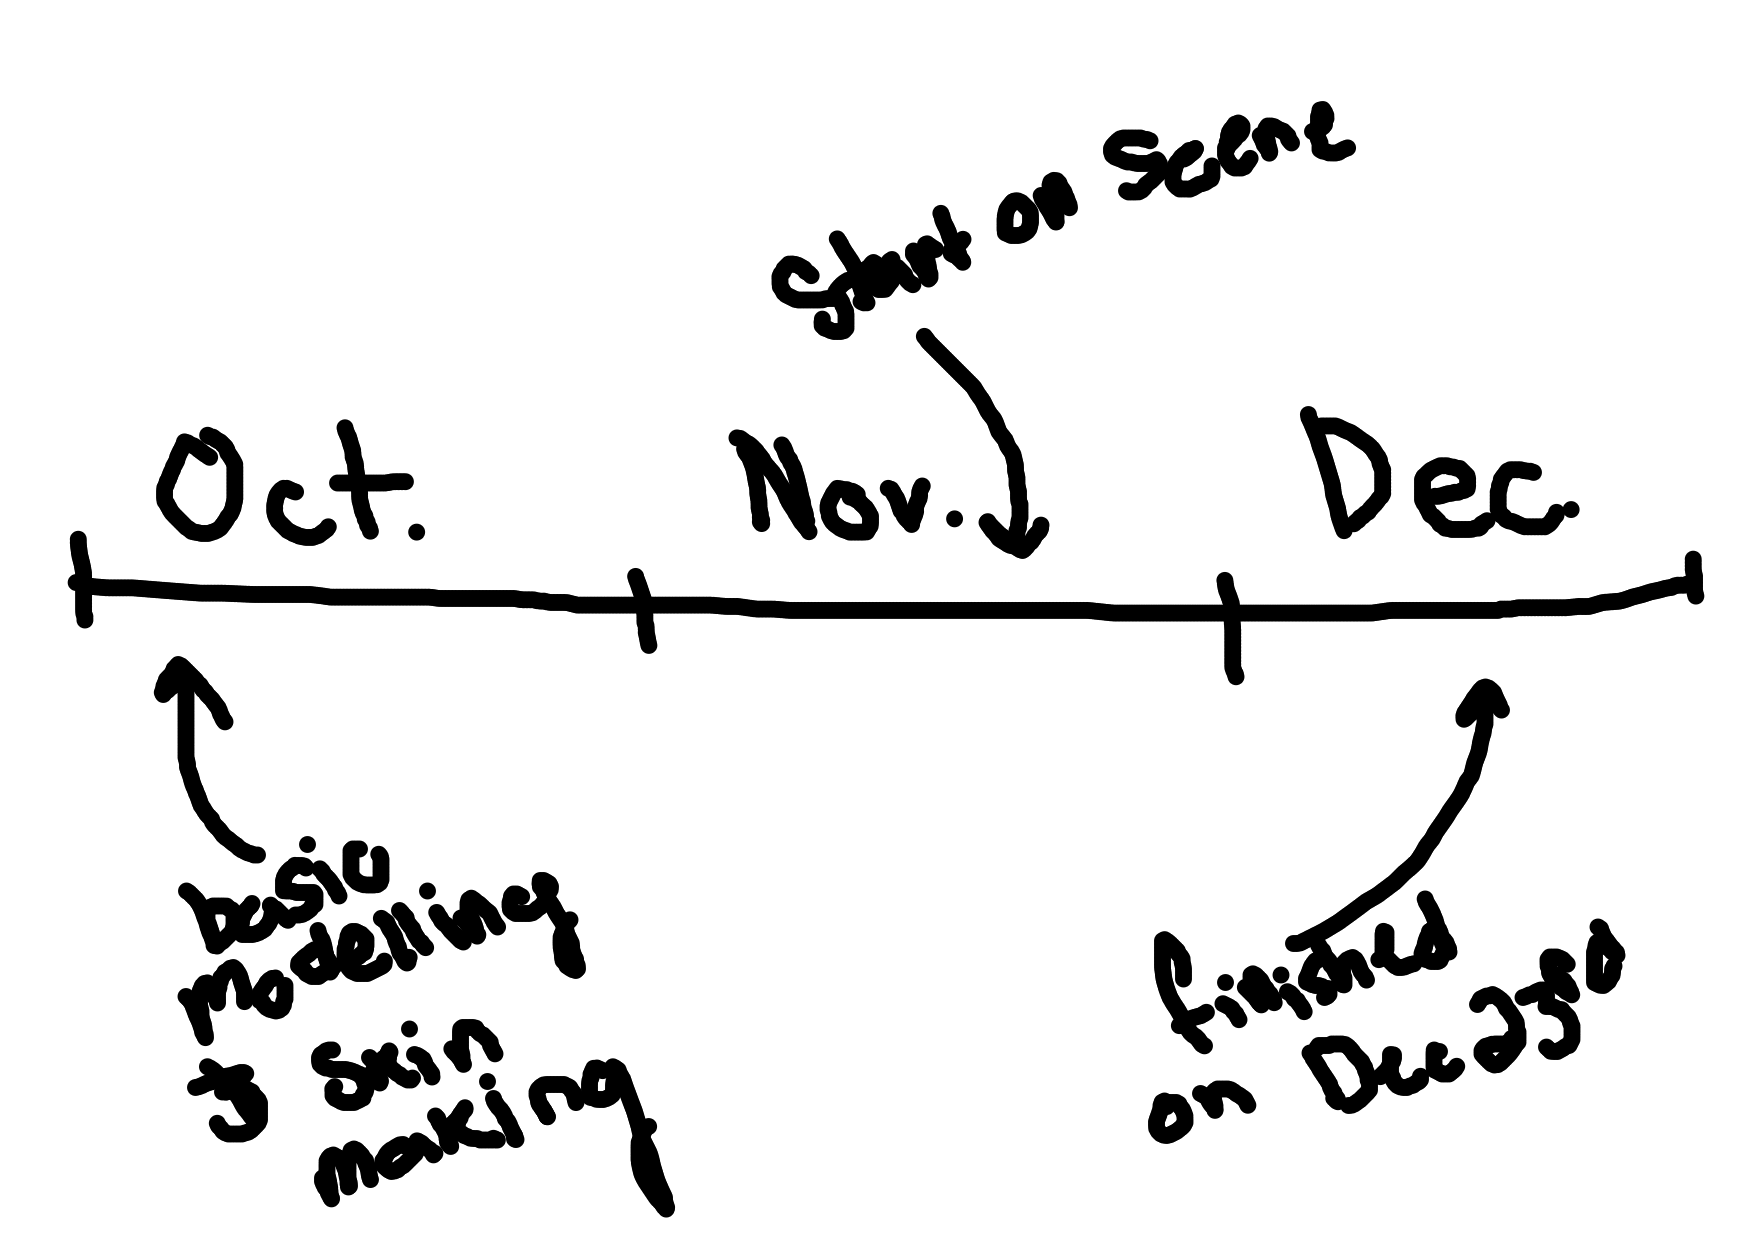 Start on scene
Oct.
Nov.
Dec.
basic
modelling
& skin
making
finished
on Dec 23rd